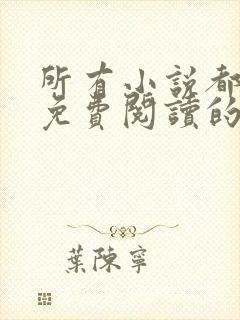 所有小說都
免費閱讀的
葉陳寧